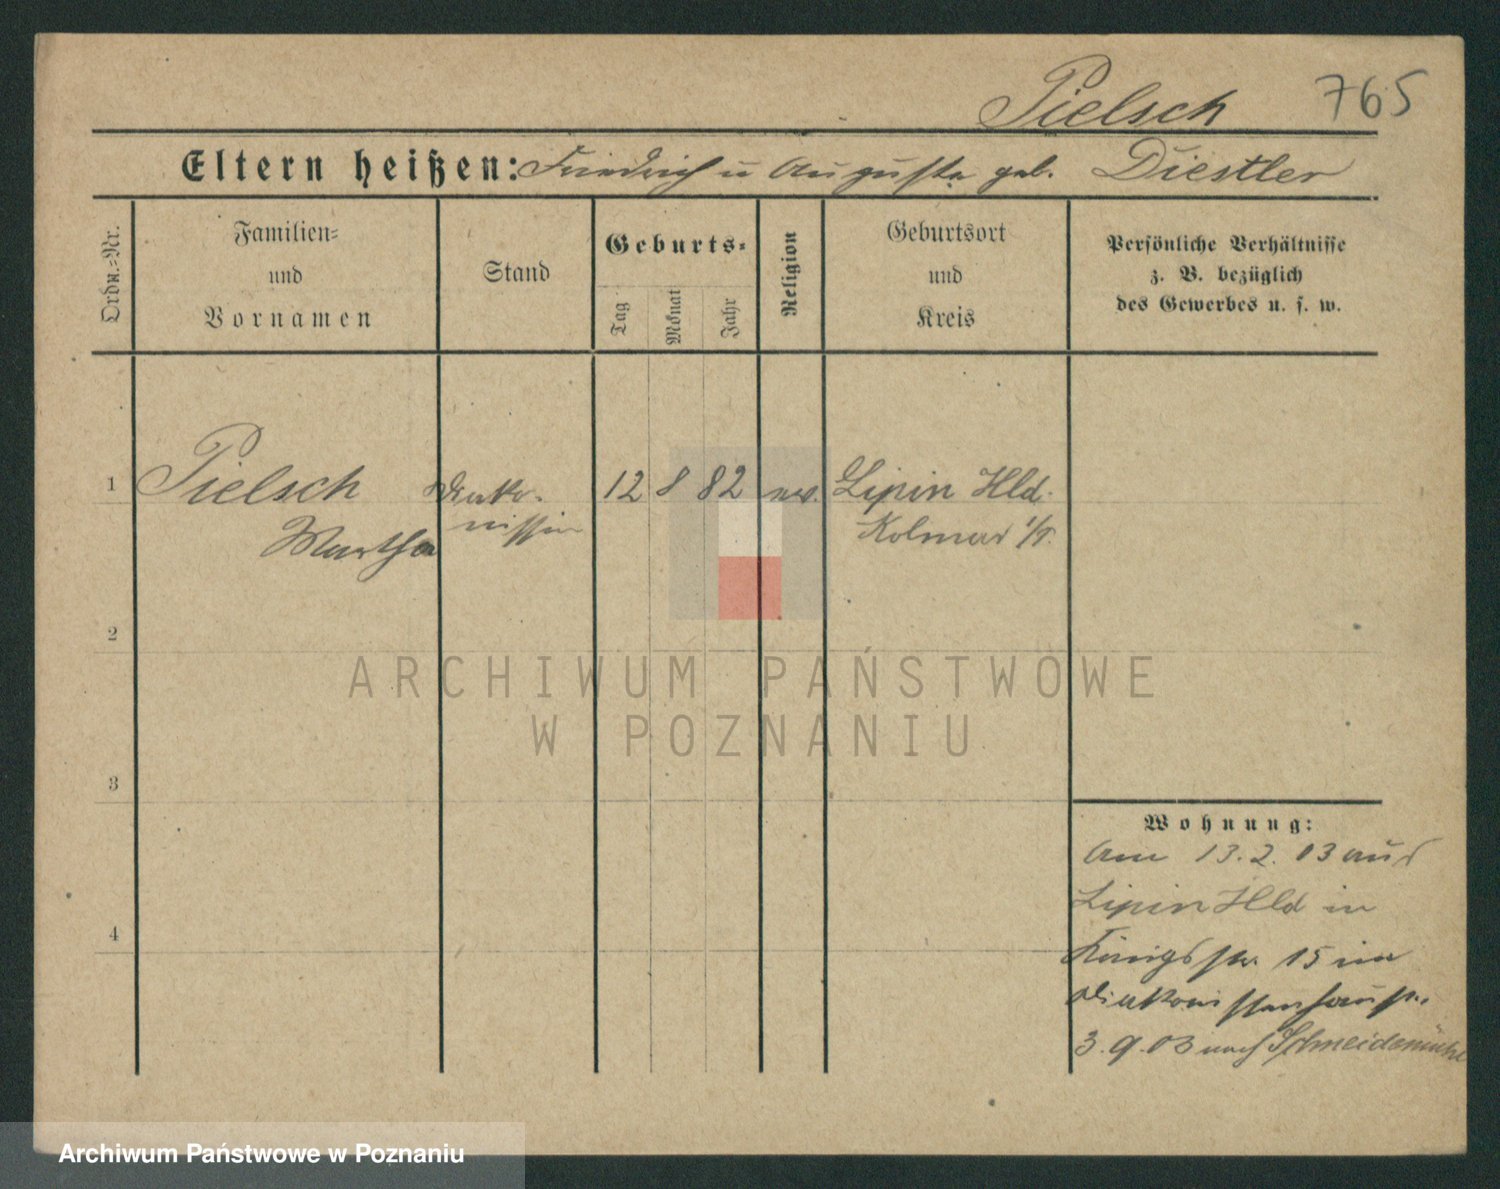 Pielsch 765
Eltern heißen: Friedrich u Auguste geb. Diestler
Ordn.-Nr.
Familien-
und
Vornamen
Stand
Geburts-
Tag
Monat
Jahr
Religion
Geburtsort
und
Kreis
Persönliche Verhältnisse
z. B. bezüglich
des Gewerbes u. s. w.
1 Pielsch Diako- 12 8 82 ev. Lipin Hld.
Martha nissin Kolmar i/P.
2
3
4
Wohnung:
Am 13.2.03 aus
Lipin Hld in
Königsstr. 15 im
Diakonissenhause.
3.9.03 nach Schneidemühl
ARCHIWUM PAŃSTWOWE
W POZNANIU
Archiwum Państwowe w Poznaniu